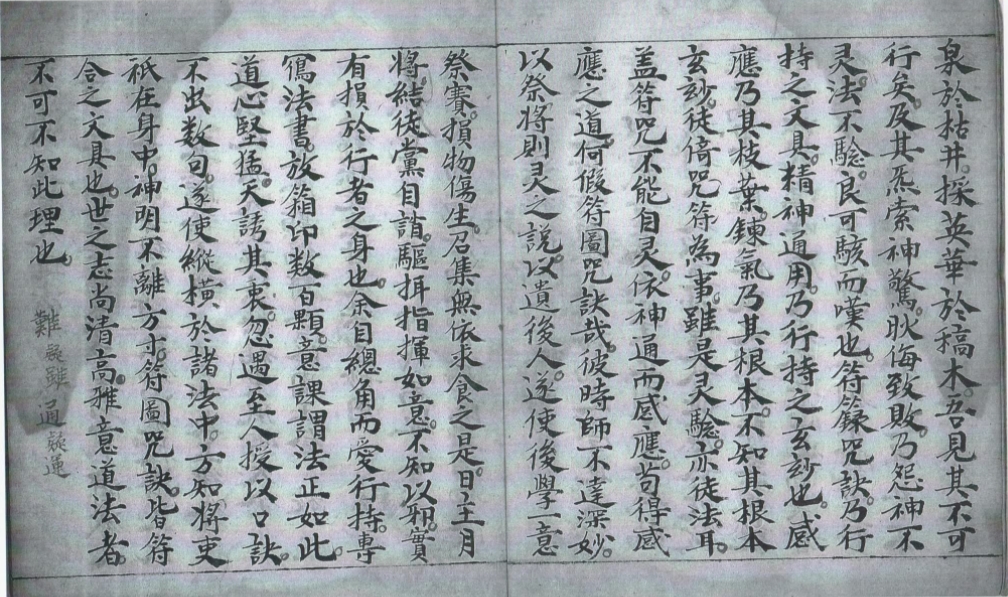 泉於枯井採英華於稿木。吾見其不可
行矣。及其炁索神驚。耿侮致敗。乃怨神不
灵。法不驗。良可駭而嘆也。符籙咒訣。乃行
持之文具。精神通用。乃行持之玄玅也。感
應乃其枝葉。鍊氣乃其根本。不知其根本
玄玅。徒倚咒符為事。雖是灵驗。亦徒法耳。
盖符咒不能自灵。依神通而感應。苟得感
應之道。何假符圖咒訣哉。彼時師不達深妙。
以祭將則灵之說。以遺後人。遂使後學一意
祭賽。損物傷生。召集無依求食之。是日主月
將。結徒黨自諧。驅揖指揮如意。不知以邪
有損於行者之身也。余自總角而愛行持。專
寫法書。放籙印数百顆。意謂法正如此。
道心堅猛。天誘其衷。忽遇至人授以口訣。
不出数句。遂使縱横於諸法中。方知將吏
祇在身中。神明不離方寸。符圖咒訣。皆符
合之文具也。世之志尚清高。雅意道法者。
不可不知此理也。
難 雖 通 運